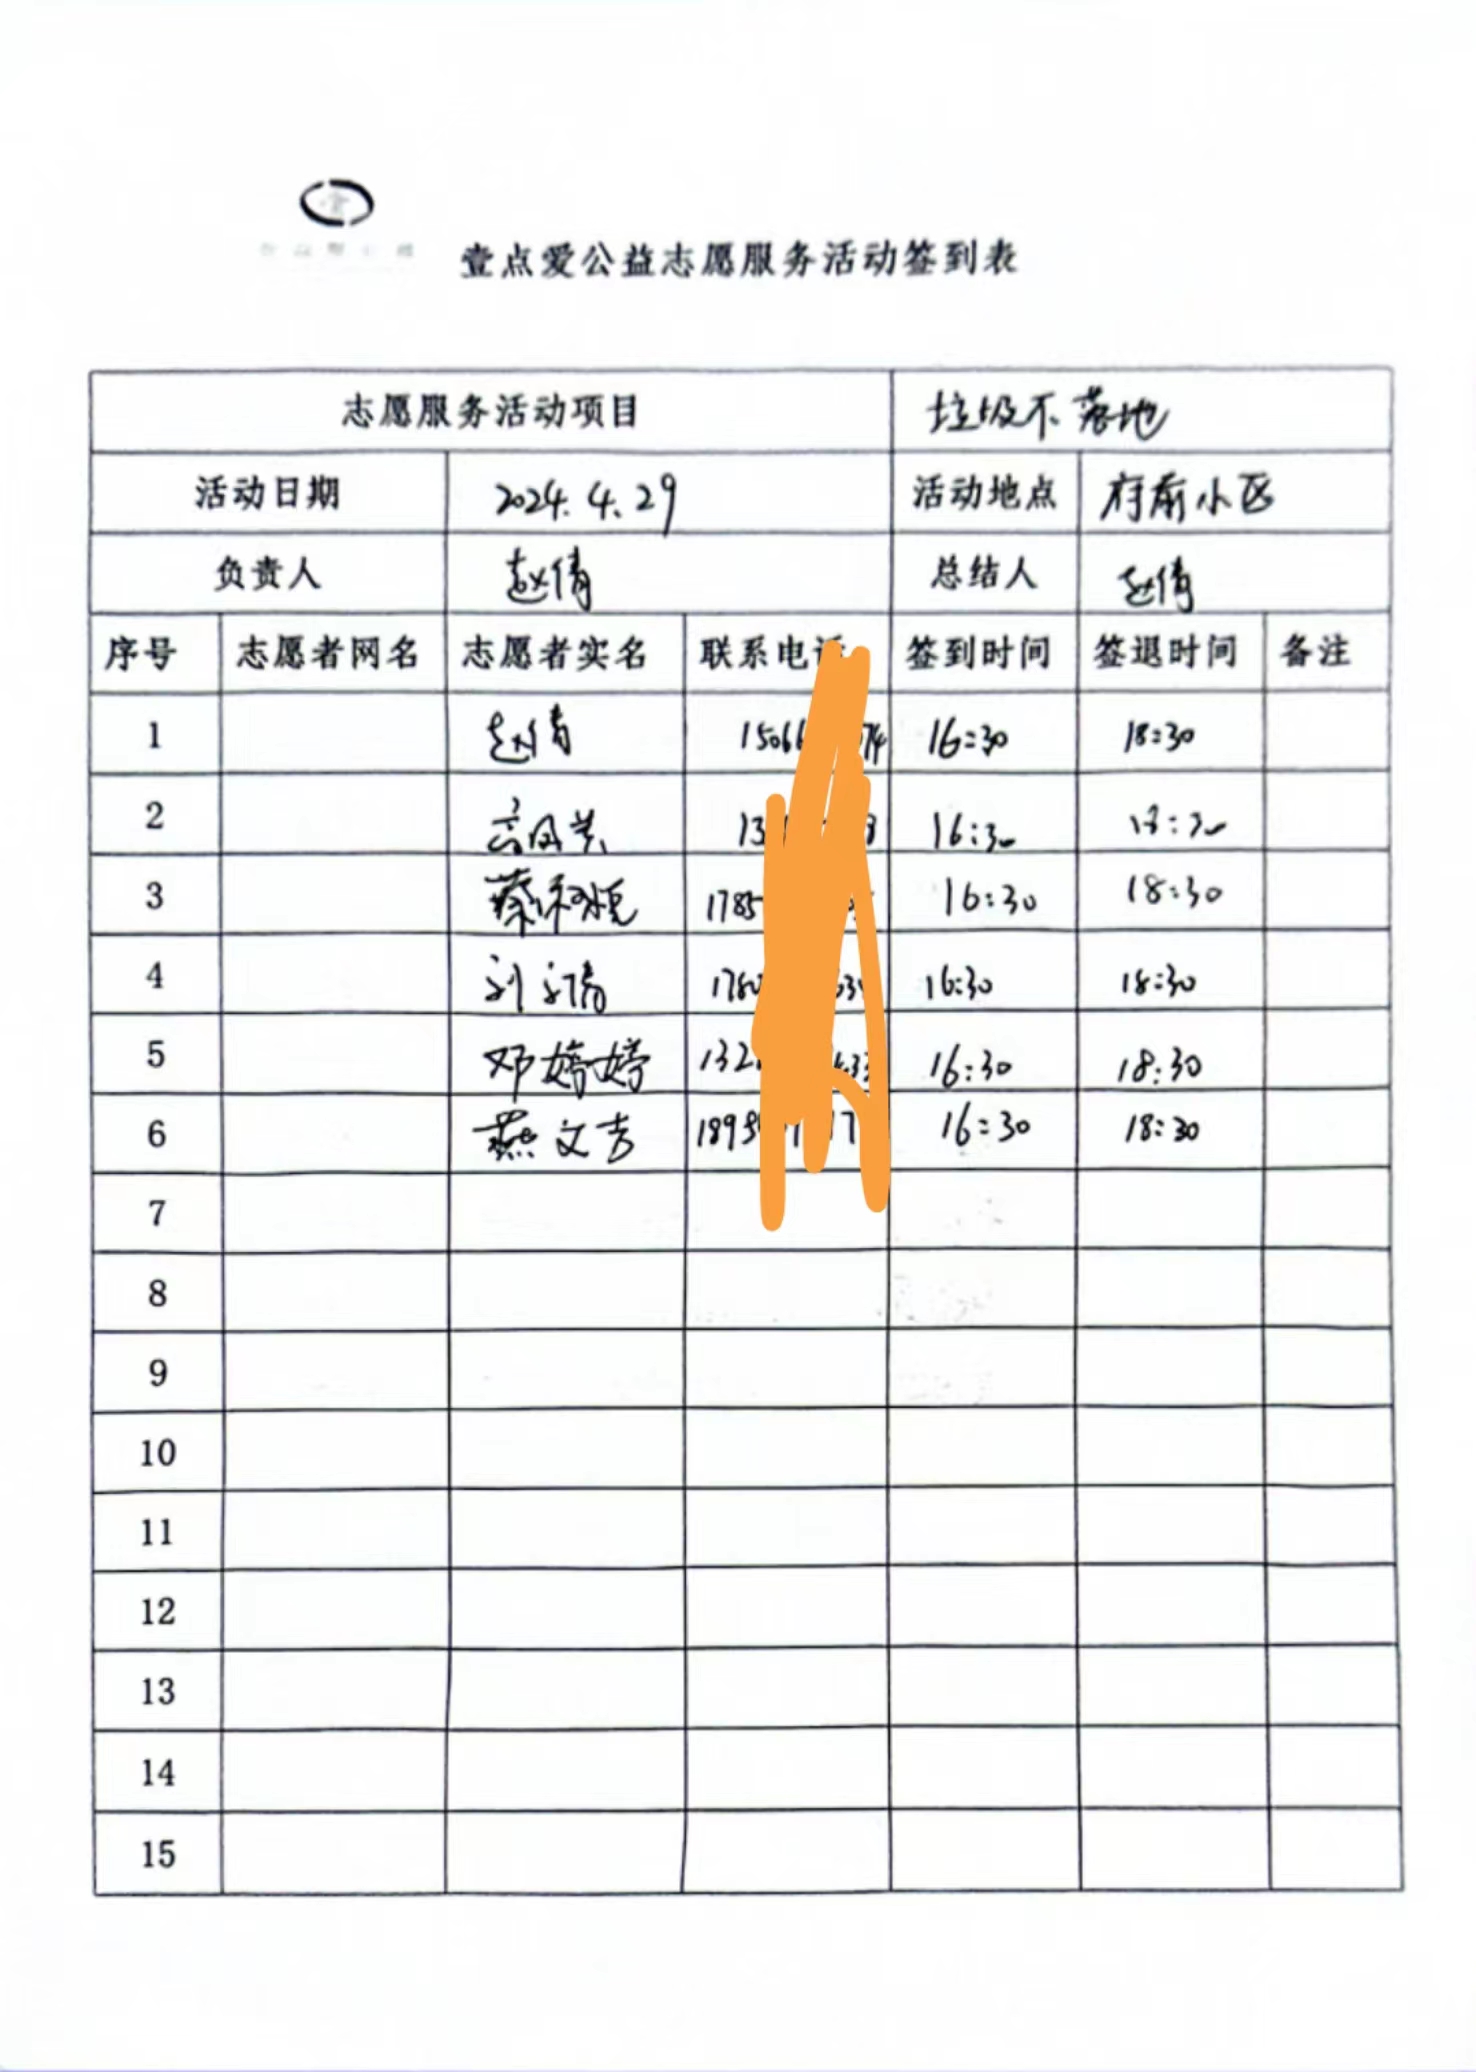 壹点爱公益志愿服务活动签到表
志愿服务活动项目 垃圾不落地
活动日期 2024.4.29 活动地点 府前小区
负责人 赵倩 总结人 赵倩
序号 志愿者网名 志愿者实名 联系电话 签到时间 签退时间 备注
1 赵倩 1506 74 16:30 18:30
2 13 8 16:30 18:30
3 蔡 悦 1785 16:30 18:30
4 刘 倩 178 33 16:30 18:30
5 邓婷婷 132 433 16:30 18:30
6 燕文吉 1895 17 16:30 18:30
7
8
9
10
11
12
13
14
15